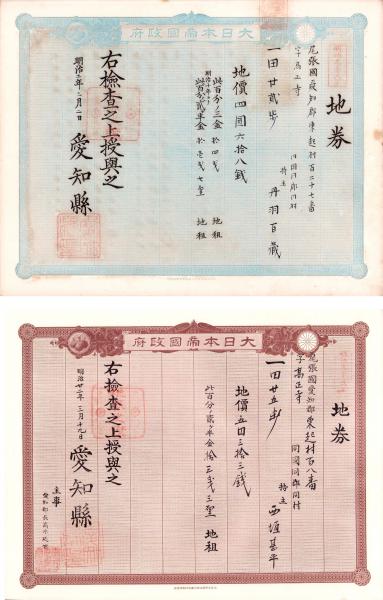 大日本帝國政府
地券
尾張國愛知郡東起村百二十七番
字馬正寺
同國同郡同村
一田廿貳歩
持主 丹羽百藏
地價四圓六拾八錢
此百分ノ三金 拾四錢 地租
明治十年ヨリ
此百分ノ貳半金 拾壱錢七厘 地租
右檢査之上授與之
明治
愛知縣
大日本帝國政府
地券
尾張國愛知郡東起村百八番
字馬正寺
同國同郡同村
一田廿五歩
持主 西垣甚平
地價五圓三拾三錢
此百分ノ貳半金拾三錢三厘 地租
右檢査之上授與之
明治廿二年三月十九日
愛知縣
主事